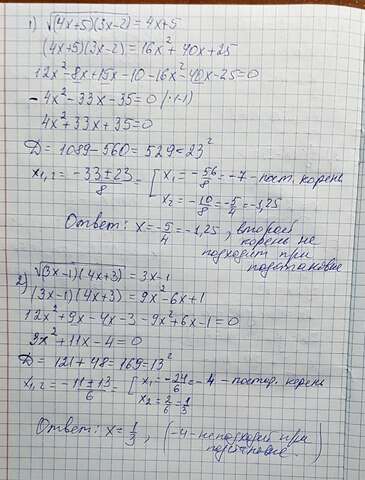 1) √(4x+5)(3x-2) = 4x+5
(4x+5)(3x-2) = 16x²+40x+25
12x²-8x+15x-10-16x²-40x-25=0
-4x²-33x-35=0 /·(-1)
4x²+33x+35=0
D = 1089-560=529=23²
x1,2 = -33±23/8 = [x1 = -56/8 = -7 - пост. корень
x2 = -10/8 = -5/4 = -1,25
Ответ: x = -5/4 = -1,25, второй
корень не
подходит при
подстановке
2) √(3x-1)(4x+3) = 3x-1
(3x-1)(4x+3) = 9x²-6x+1
12x²+9x-4x-3-9x²+6x-1=0
3x²+11x-4=0
D = 121+48=169=13²
x1,2 = -11±13/6 = [x1 = -24/6 = -4 - постор. корень
x2 = 2/6 = 1/3
Ответ: x = 1/3, (-4 - не подходит при
подстановке)